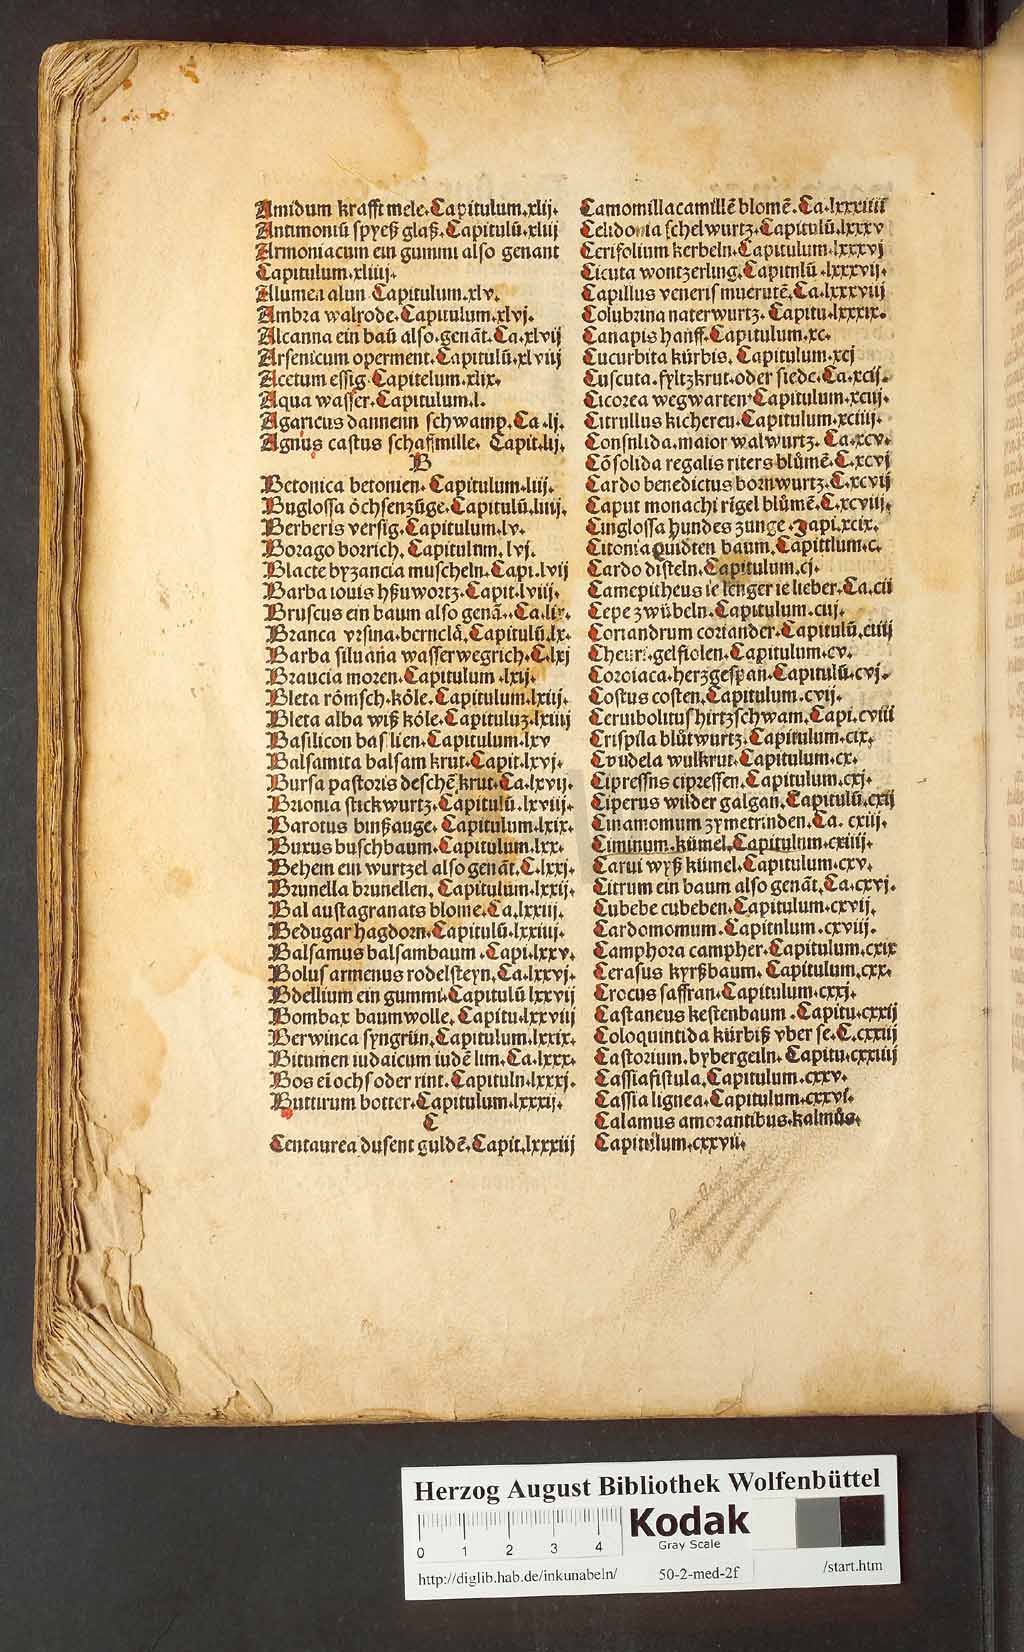 Amidum krafft mele. Capitulum.xlij.
Antimoniū spyeß glaß. Capitulū.xliij
Armoniacum ein gummi also genant
Capitulum.xliiij.
Alumen alun Capitulum.xlv.
Ambra walrode. Capitulum.xlvj.
Alcanna ein baū also.genāt. Ca.xlvij
Arsenicum operment. Capitulū.xlviij
Acetum essig. Capitelum.xlix.
Aqua wasser. Capitulum.l.
Agaricus dannenn schwamp. Ca.lj.
Agnus castus schaffmille. Capit.lij.
B
Betonica betonien. Capitulum.liij.
Buglossa öchsenzūge. Capitulū.liiij.
Berberis versig. Capitulum.lv.
Borago borrich. Capitulnm.lvj.
Blacte byzancia muscheln. Capi.lvij
Barba iouis hßuwortz. Capit.lviij.
Bruscus ein baum also genā.. Ca.lix.
Branca vrsina.bernclā. Capitulū.lx.
Barba siluana wasserwegrich. C.lxj
Braucia moren. Capitulum.lxij.
Bleta römsch.köle. Capitulum.lxiij.
Bleta alba wiß köle. Capituluz.lxiiij
Basilicon basilien. Capitulum.lxv
Balsamita balsam krut. Capit.lxvj.
Bursa pastoris deschē krut. Ca.lxvij.
Brionia stickwurtz. Capitulū.lxviij.
Barotus binßauge. Capitulum.lxix.
Buxus buschbaum. Capitulum.lxx.
Behem ein wurtzel also genāt. C.lxxj.
Brunella brunellen. Capitulum.lxxij.
Balaustagranats blome. Ca.lxxiij.
Bedugar hagdorn. Capitulū.lxxiiij.
Balsamus balsambaum. Capi.lxxv.
Bolus armenus rodelsteyn. Ca.lxxvj.
Bdellium ein gummi. Capitulū lxxvij
Bombax baumwolle. Capitu.lxxviij
Berwinca syngrün. Capitulum.lxxix.
Bitumen iudaicum iudē lim. Ca.lxxx.
Bos ei ochs oder rint. Capituln.lxxxj.
Buttirum botter. Capitulum.lxxxij.
C
Centaurea dusent guldē. Capit.lxxxiij
Camomilla camillē blomē. Ca.lxxxiiii
Celidonia schelwurtz. Capitulū.lxxxv
Cerifolium kerbeln. Capitulum.lxxxvj
Cicuta wontzerling. Capitnlū.lxxxvij.
Capillus veneris muerutē. Ca.lxxxviij
Colubrina naterwurtz. Capitu.lxxxix.
Canapis hanff. Capitulum.xc.
Cucurbita kürbis. Capitulum.xcj
Cuscuta.fyltzkrut.oder side. Ca.xcij.
Cicorea wegwarten. Capitulum.xciij.
Citrullus kicheren. Capitulum.xciiij.
Consnlida.maior walwurtz. Ca.xcv.
Cōsolida regalis riters blůmē. C.xcvj
Cardo benedictus bornwurtz. C.xcvij
Caput monachi rigel blůmē. C.xcviij.
Cinglossa hundes zunge. Capi.xcix.
Citonia quidten baum. Capittlum.c.
Cardo disteln. Capitulum.cj.
Camepitheus ie lenger ie lieber. Ca.cii
Cepe zwübeln. Capitulum.ciij.
Coriandrum coriander. Capitulū.ciiij
Cheuri.gelfiolen. Capitulum.cv.
Cordiaca.herzgespan. Capitulū.cvj.
Costus costen. Capitulum.cvij.
Ceruibolitus hirtzschwam. Capi.cviii
Crispila blůtwurtz. Capitulum.cix.
Coudela wulkrut. Capitulum.cx.
Cipressns cipressen. Capitulum.cxj.
Ciperus wilder galgan. Capitulū.cxij
Cinamomum zymetrinden. Ca.cxiij.
Ciminum.kümel. Capitulnm.cxiiij.
Carui wyß kümel. Capitulum.cxv.
Citrum ein baum also genāt. Ca.cxvj.
Cubebe cubeben. Capitulum.cxvij.
Cardomomum. Capitnlum.cxviij.
Camphora campher. Capitulum.cxix
Cerasus kyrßbaum. Capitulum.cxx.
Crocus saffran. Capitulum.cxxj.
Castaneus kestenbaum. Capitu.cxxij
Coloquintida kürbiß vber se. C.cxxiij
Castorium.bybergeiln. Capitu.cxxiiij
Cassiafistula. Capitulum.cxxv.
Cassia lignea. Capitulum.cxxvi.
Calamus amorantibus.kalmůs.
Capitulum.cxxvii.
Herzog August Bibliothek Wolfenbüttel
0 1 2 3 4
Kodak
Gray Scale
http://diglib.hab.de/inkunabeln/ 50-2-med-2f /start.htm